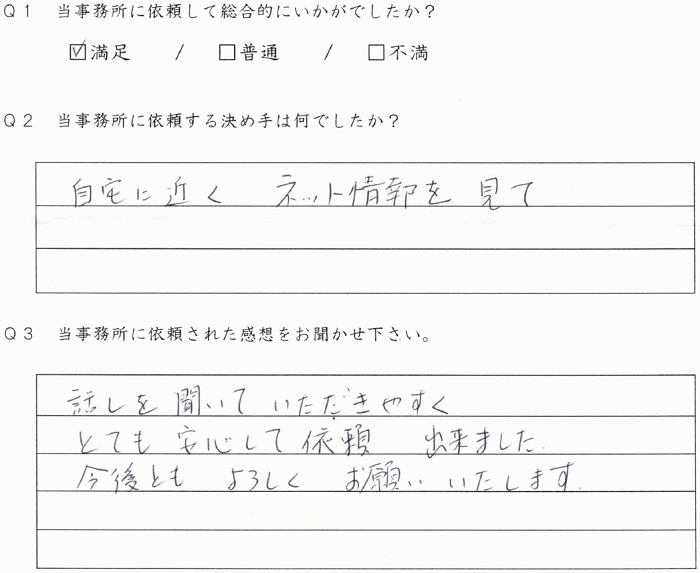 Q1 当事務所に依頼して総合的にいかがでしたか?
☑満足 / □普通 / □不満
Q2 当事務所に依頼する決め手は何でしたか?
自宅に近く ネット情報を見て
Q3 当事務所に依頼された感想をお聞かせ下さい。
話しを聞いていただきやすく
とても安心して依頼 出来ました.
今後とも よろしく お願いいたします.